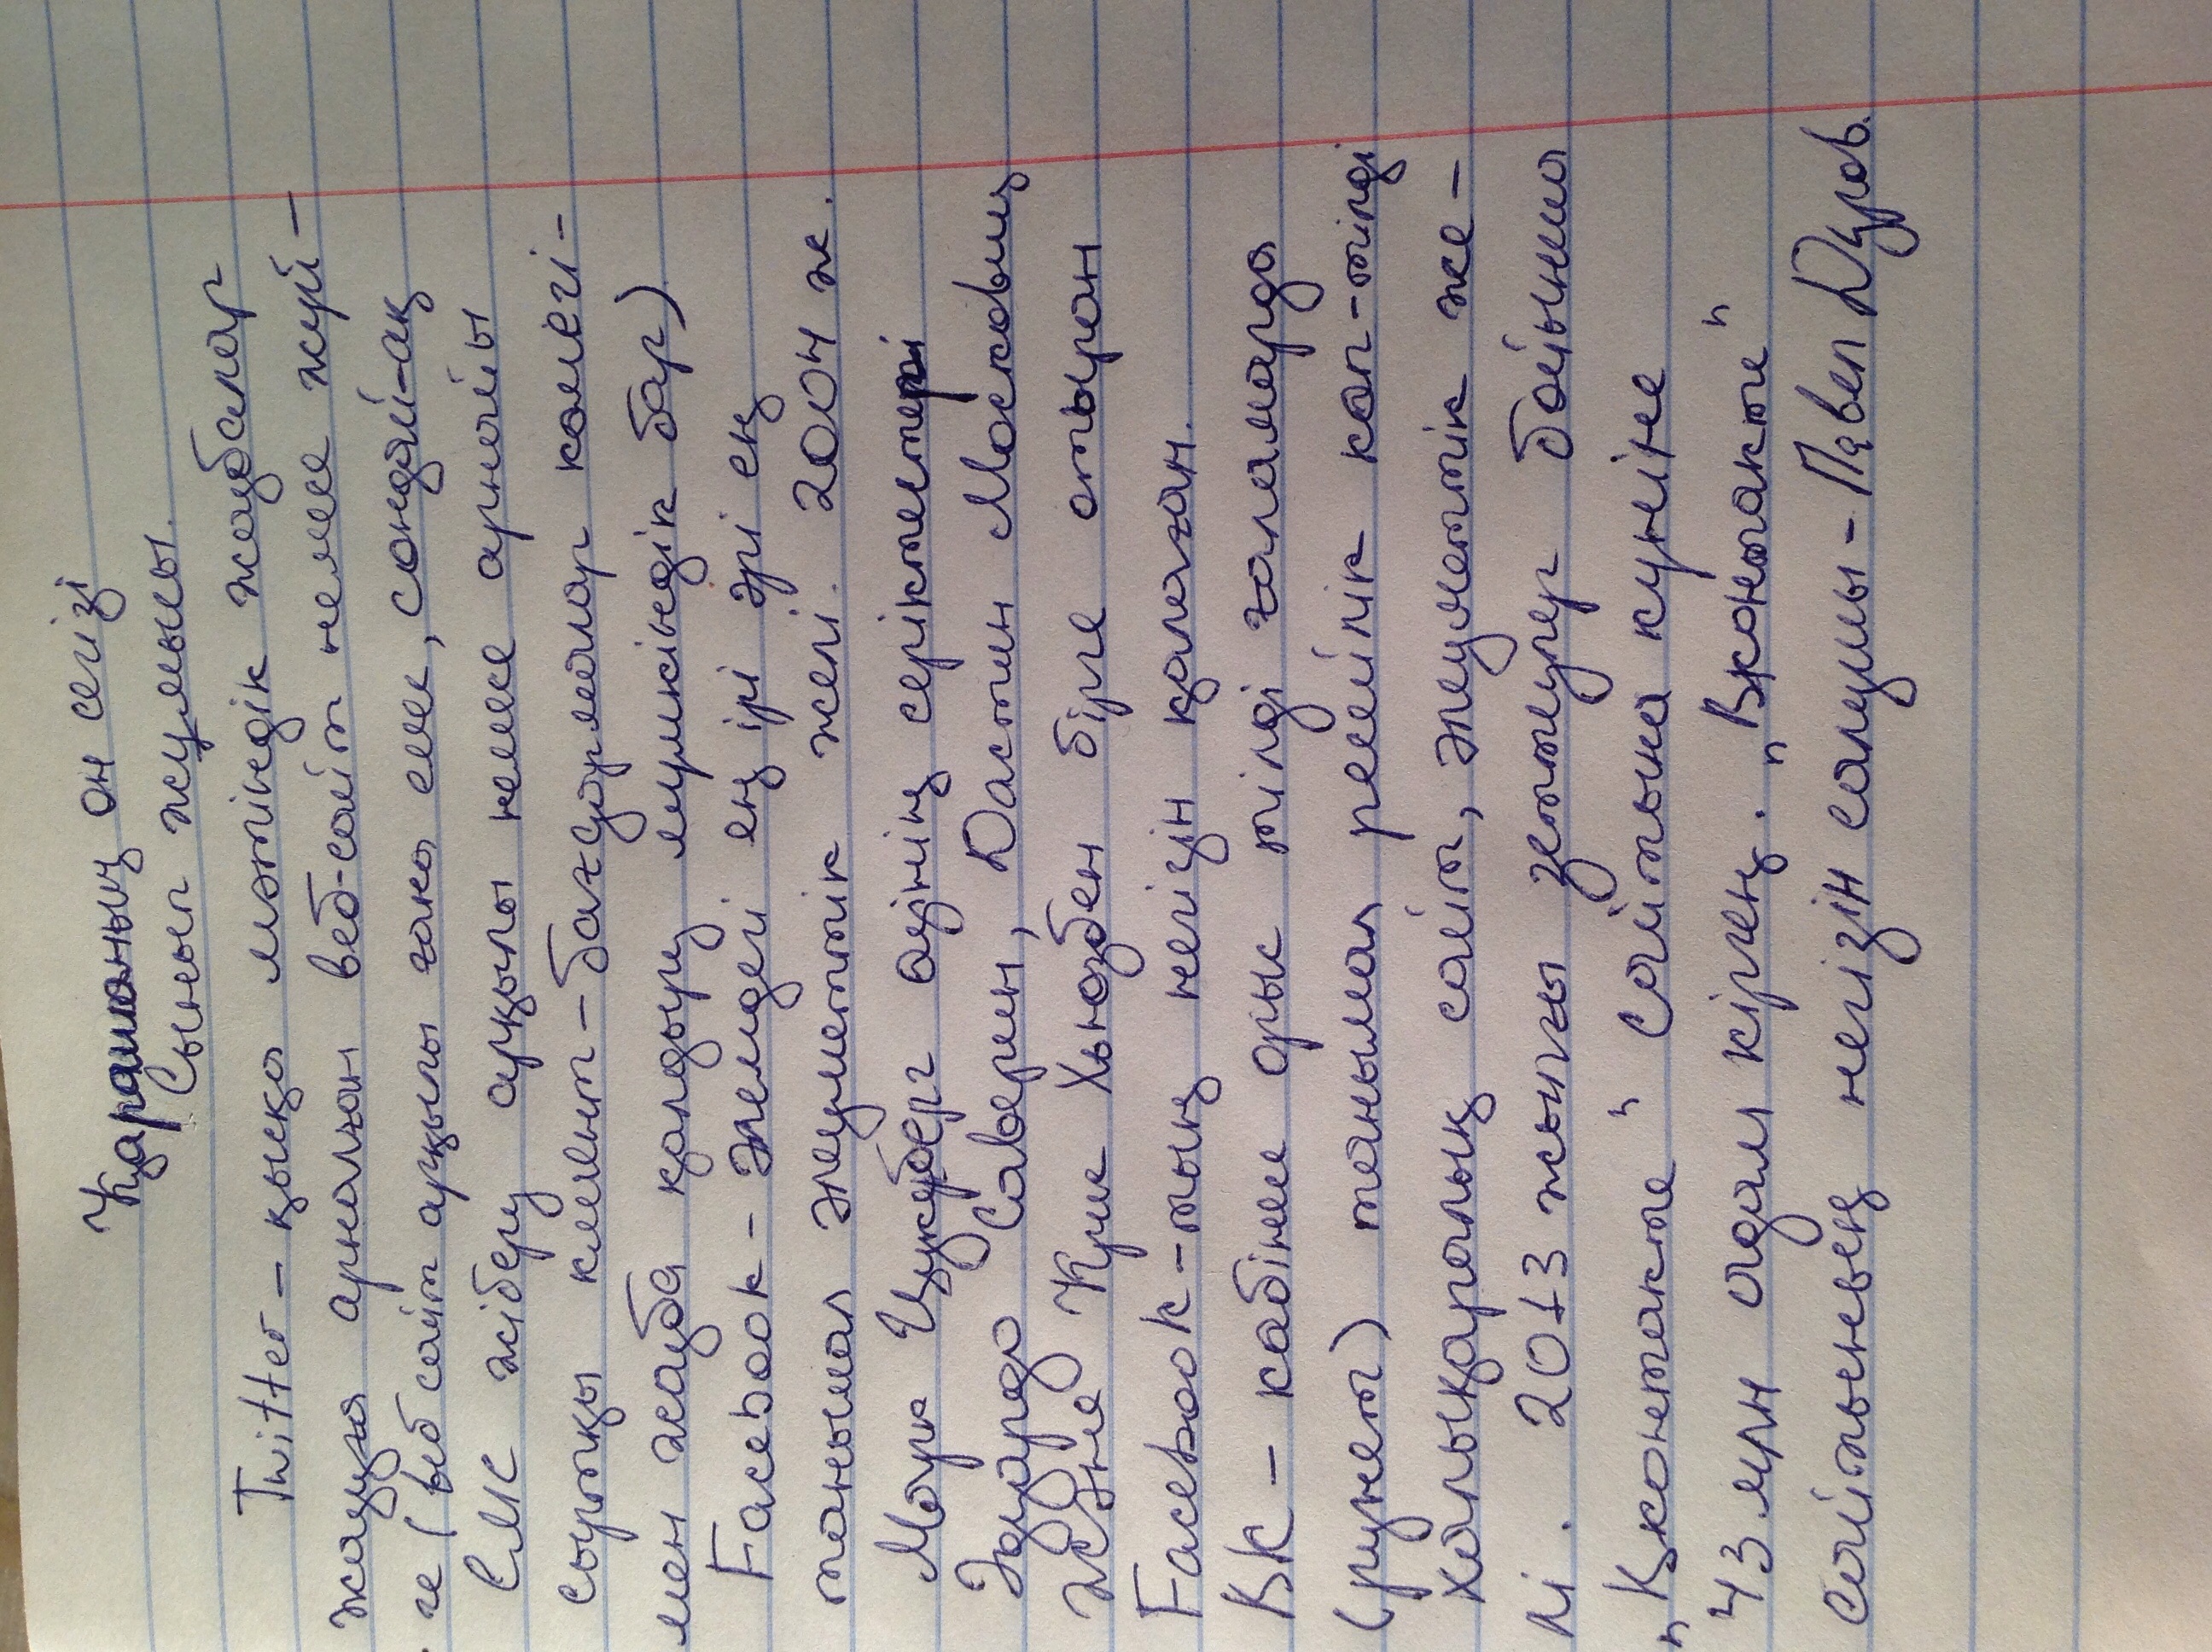 Қарашаның он сегізі
Сынып жұмысы.
Twitter – қысқа мәтіндік жазбалар
жазуға арналған веб-сайт немесе жүй-
ге (веб сайт арқылы ғана емес, сондай-ақ
СМС жіберу арқылы немесе арнайы
сыртқы клиент-бағдарламалар көмегі-
мен жазба қалдыру мүмкіндік бар)
Facebook - Әлемдегі ең ірі әрі ең
танымал әлеуметтік желі. 2004 ж.
Марк Цукерберг өзінің серіктестері
Эдуардо Саверин, Дастин Московиц
Және Крис Хьюзбен бірге отырып
Facebook-тың негізін қалаған.
ВК – көбінесе орыс тілді ғаламторда
(рунет) танымал ресейлік көп-тілді
халықаралық сайт, әлеуметтік же-
лі. 2013 жылғы зеттеулер бойынша
"Вконтакте" Сайтына күніне
43 млн адам кірген. "Вконтакте"
Сайтының негізін салушы - Павел Дуров.